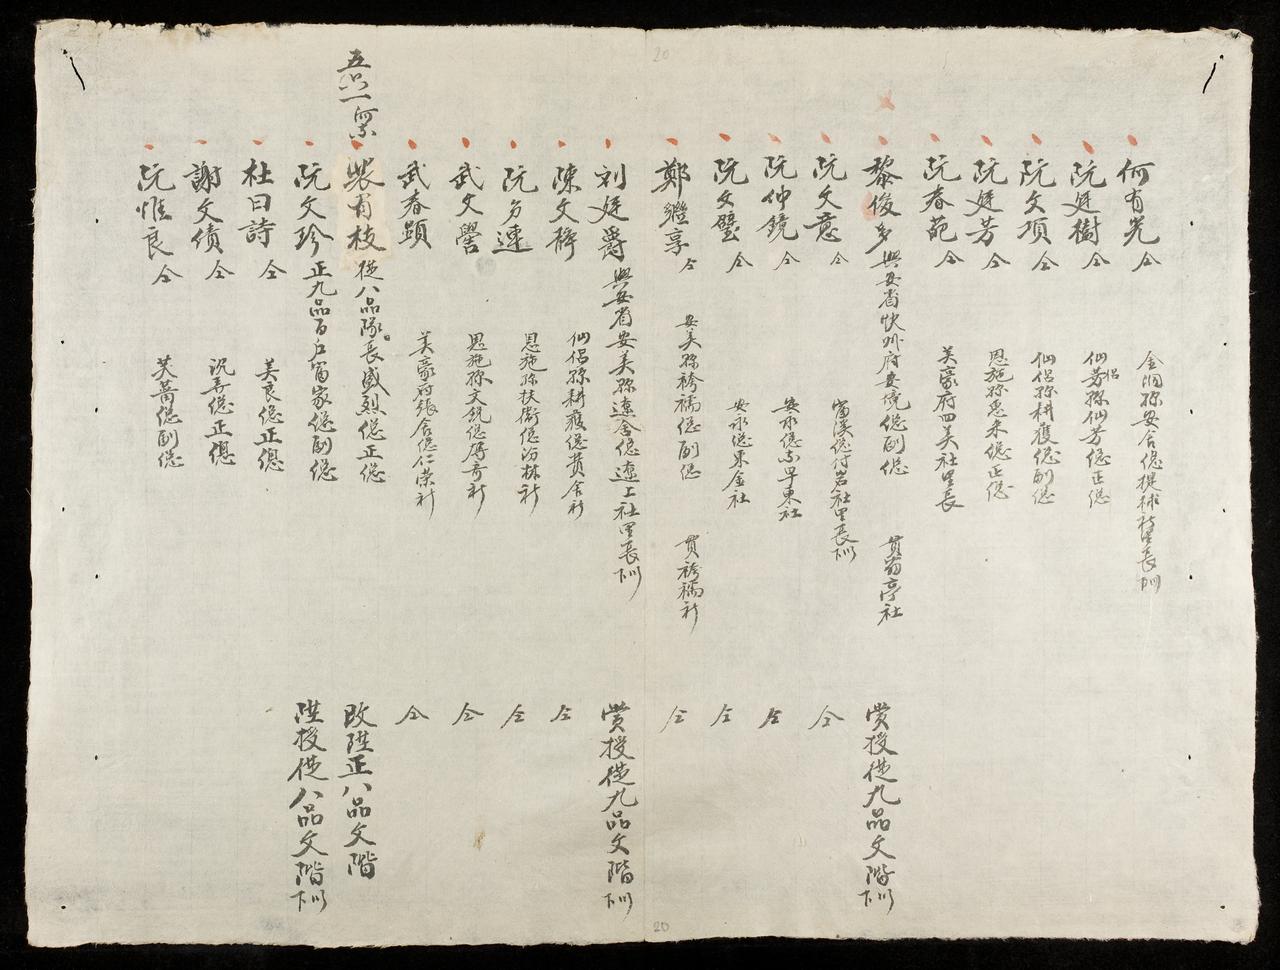 何有光 仝 金洞縣安舍總提球社里長下
阮廷樹 仝 仙侣芳縣仙芳總正總
阮文項 仝 仙侣縣耕穫總副總
阮廷芳 仝 恩施縣惠來總正總
阮春苑 仝 芙豪府四美社里長
黎俊多 興安省快州府安境總副總 貫萄亭社 賞授從九品文階
阮文意 仝 富溪總付岩社里長 仝
阮仲鏡 仝 安永總東早東社 仝
阮文璧 仝 安永總東金社 仝
鄭繼享 仝 安美縣袴襦總副總 貫袴襦社 仝
刘廷爵 興安省安美縣遼舍總遼上社里長 賞授從九品文階
陳文 仙侣縣耕穫總黄舍社 仝
阮方連 恩施縣扶衛總汾林社 仝
武文譽 恩施縣文 社 仝
武春顕 芙豪府張舍總仁榮社 仝
五 一 裴有枝 從八品隊長盛烈總正總 改陞正八品文階
阮文珍 正九品百户富家總副總 陞授從八品文階
杜曰詩 仝 美良總正總
謝文债 仝 况弄總正總
阮惟良 仝 芙蕾總副總
20
20